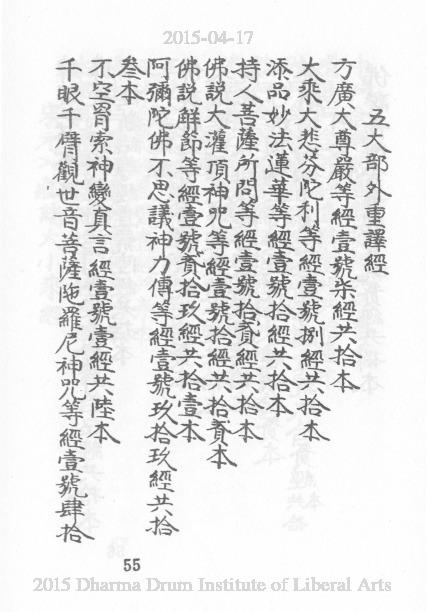 2015-04-17
五大部外重譯經
方廣大尊嚴等經壹號柒經共拾本
大乘大悲芬陀利等經壹號捌經共拾本
添品妙法蓮華等經壹號拾經共拾本
持人菩薩所問等經壹號拾貳經共拾本
佛説大灌頂神咒等經壹號拾經共拾貳本
佛説解節等經壹號貳拾玖經共拾壹本
阿彌陀佛不思議神力傳等經壹號玖拾玖經共拾
叁本
不空罥索神變真言經壹號壹經共陸本
千眼千臂觀世音菩薩陁羅尼神咒等經壹號肆拾
55
2015 Dharma Drum Institute of Liberal Arts